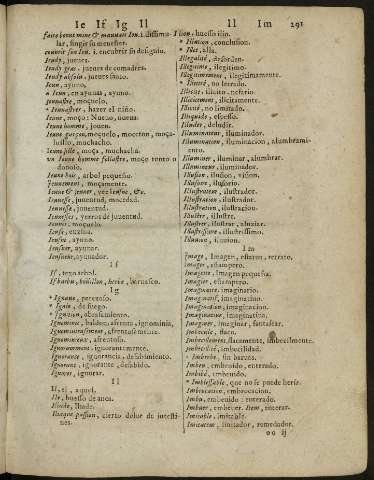 Ie If Ig Il
faire bonne mine & mauuais Ieu. i. dissimular, fingir su menester.
couurir son Ieu. i. encubrir su designio.
Ieudy, jueues.
Ieudy gras, jueues de comadres.
Ieudy absolu, jueues santo.
Ieun, ayuno.
à Ieun, en ayunas, ayuno.
Ieunastre, moçuelo.
* Ieunastrer, hazer el niño.
Ieune, moço: Nueuo, nueua.
Ieune homme, jouen.
Ieune garçon, moçuelo, moceton, moçalusillo, muchacho.
Ieune fille, moça, muchacha.
vn Ieune homme follastre, moço tonto o donoso.
Ieune bois, arbol pequeño.
Ieunement, moçamente.
Ieune & jeuner, vee Iensne, &c.
Ieunesse, juuentud, mocedad.
Ieunesse, juuentud.
Ieunesses, yerros de juuentud.
moçuelo.
Ieusne, ayuno.
Ieusner, ayunar.
Ieusneur, ayunador.
If
If, texo arbol.
Ig
* Ignaue, perezoso.
* Ignée, de fuego.
* Ignition, abrasamiento.
Ignominie, baldon, afrenta, ignominia,
Ignominieusement, afrentosamente.
Ignominieux, afrentoso.
Ignoramment, ignorantemente.
Ignorance, ignorancia, desabimiento.
Ignorant, ignorante, desabido.
Ignorer, ignorar.
Il
Il, el, aquel.
Ile, huesso de anca.
Iliade, Iliade.
Iliaque passion, cierto dolor de intestines.
Il Im 291
Ilion, huessa ilio.
* Illation, conclusion.
* Illec, alla.
Illegalité, desorden.
Illegitime, ilegitimo.
Illegitimement, ilegitimamente.
* Illimité, no limitado.
Illicite, ilicito, nefario.
Illicitement, ilicitamente.
Illimité, no limitado.
Illiquide, espesso.
Illuder, deludir.
Illuminateur, iluminador.
Illumination, iluminacion, alumbramiento.
Illuminer, iluminar, alumbrar.
Illumineur, iluminador.
Illusion, ilusion, vision.
Illusoire, ilusorio.
Illustrateur, ilustrador.
Illustrateur, ilustrador.
Illustration, ilustracion.
Illustre, illustre.
Illustrer, ilustrar, aluziar.
Illustrissime, illustrissimo.
Im
Image, Imagen, estatua, retrato.
Imager, estampero.
Imagette, imagen pequeña.
Imagier, estampero.
Imaginaire, imaginario.
Imaginatif, imaginatiuo.
Imagination, imaginacion.
Imaginatiue, imaginatiua.
Imaginer, imaginar, fantasear.
Imbecile, flaco.
Imbecilement, flacamente, imbecilmente.
Imbecilité, imbecilidad.
* Imberbe, sin baruas.
Imbeu, embeuido, enterado.
Imbibé, embeuido.
* Imblessable, que no se puede herir.
Imbu, embeuido: enterado.
Imbuer, embeuer. Item, enterar.
Imitable, imitable.
Imitateur, imitador, remedador.
oo ij